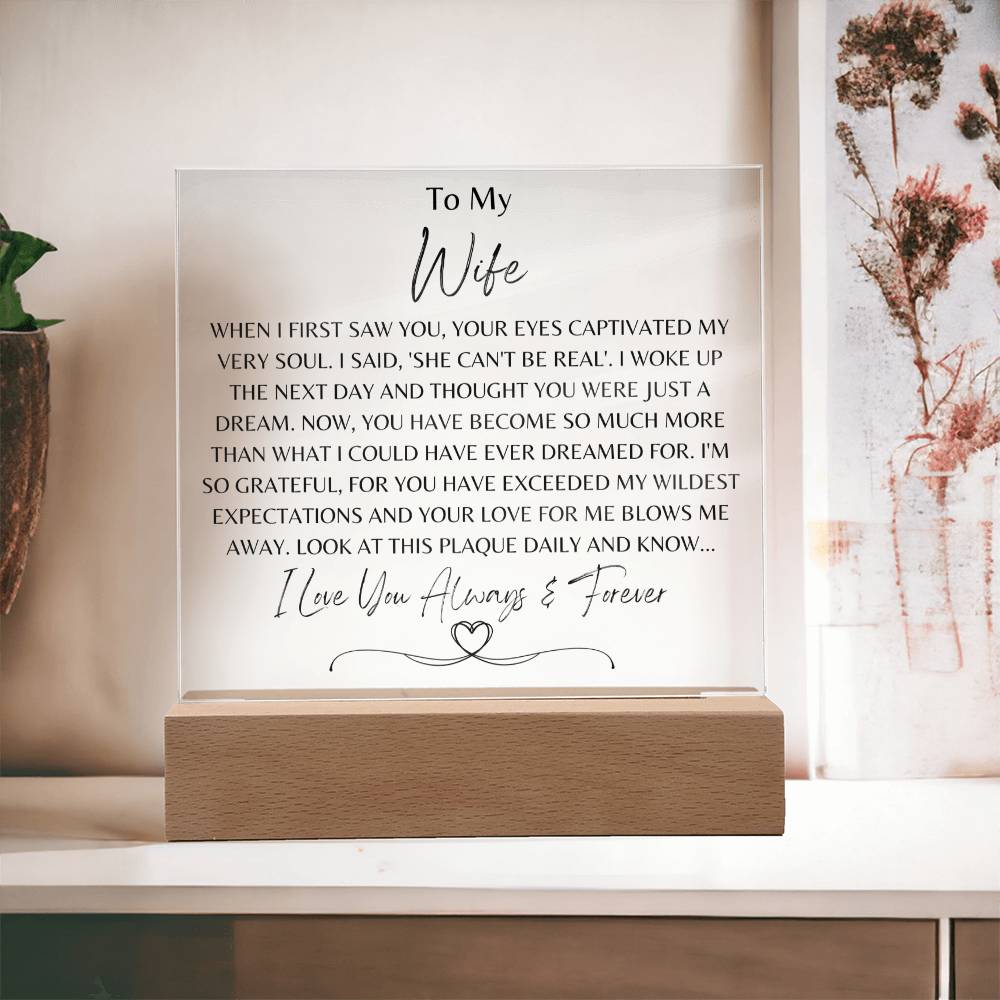 To My
Wife
WHEN I FIRST SAW YOU, YOUR EYES CAPTIVATED MY
VERY SOUL. I SAID, 'SHE CAN'T BE REAL'. I WOKE UP
THE NEXT DAY AND THOUGHT YOU WERE JUST A
DREAM. NOW, YOU HAVE BECOME SO MUCH MORE
THAN WHAT I COULD HAVE EVER DREAMED FOR. I'M
SO GRATEFUL, FOR YOU HAVE EXCEEDED MY WILDEST
EXPECTATIONS AND YOUR LOVE FOR ME BLOWS ME
AWAY. LOOK AT THIS PLAQUE DAILY AND KNOW...
I Love You Always & Forever